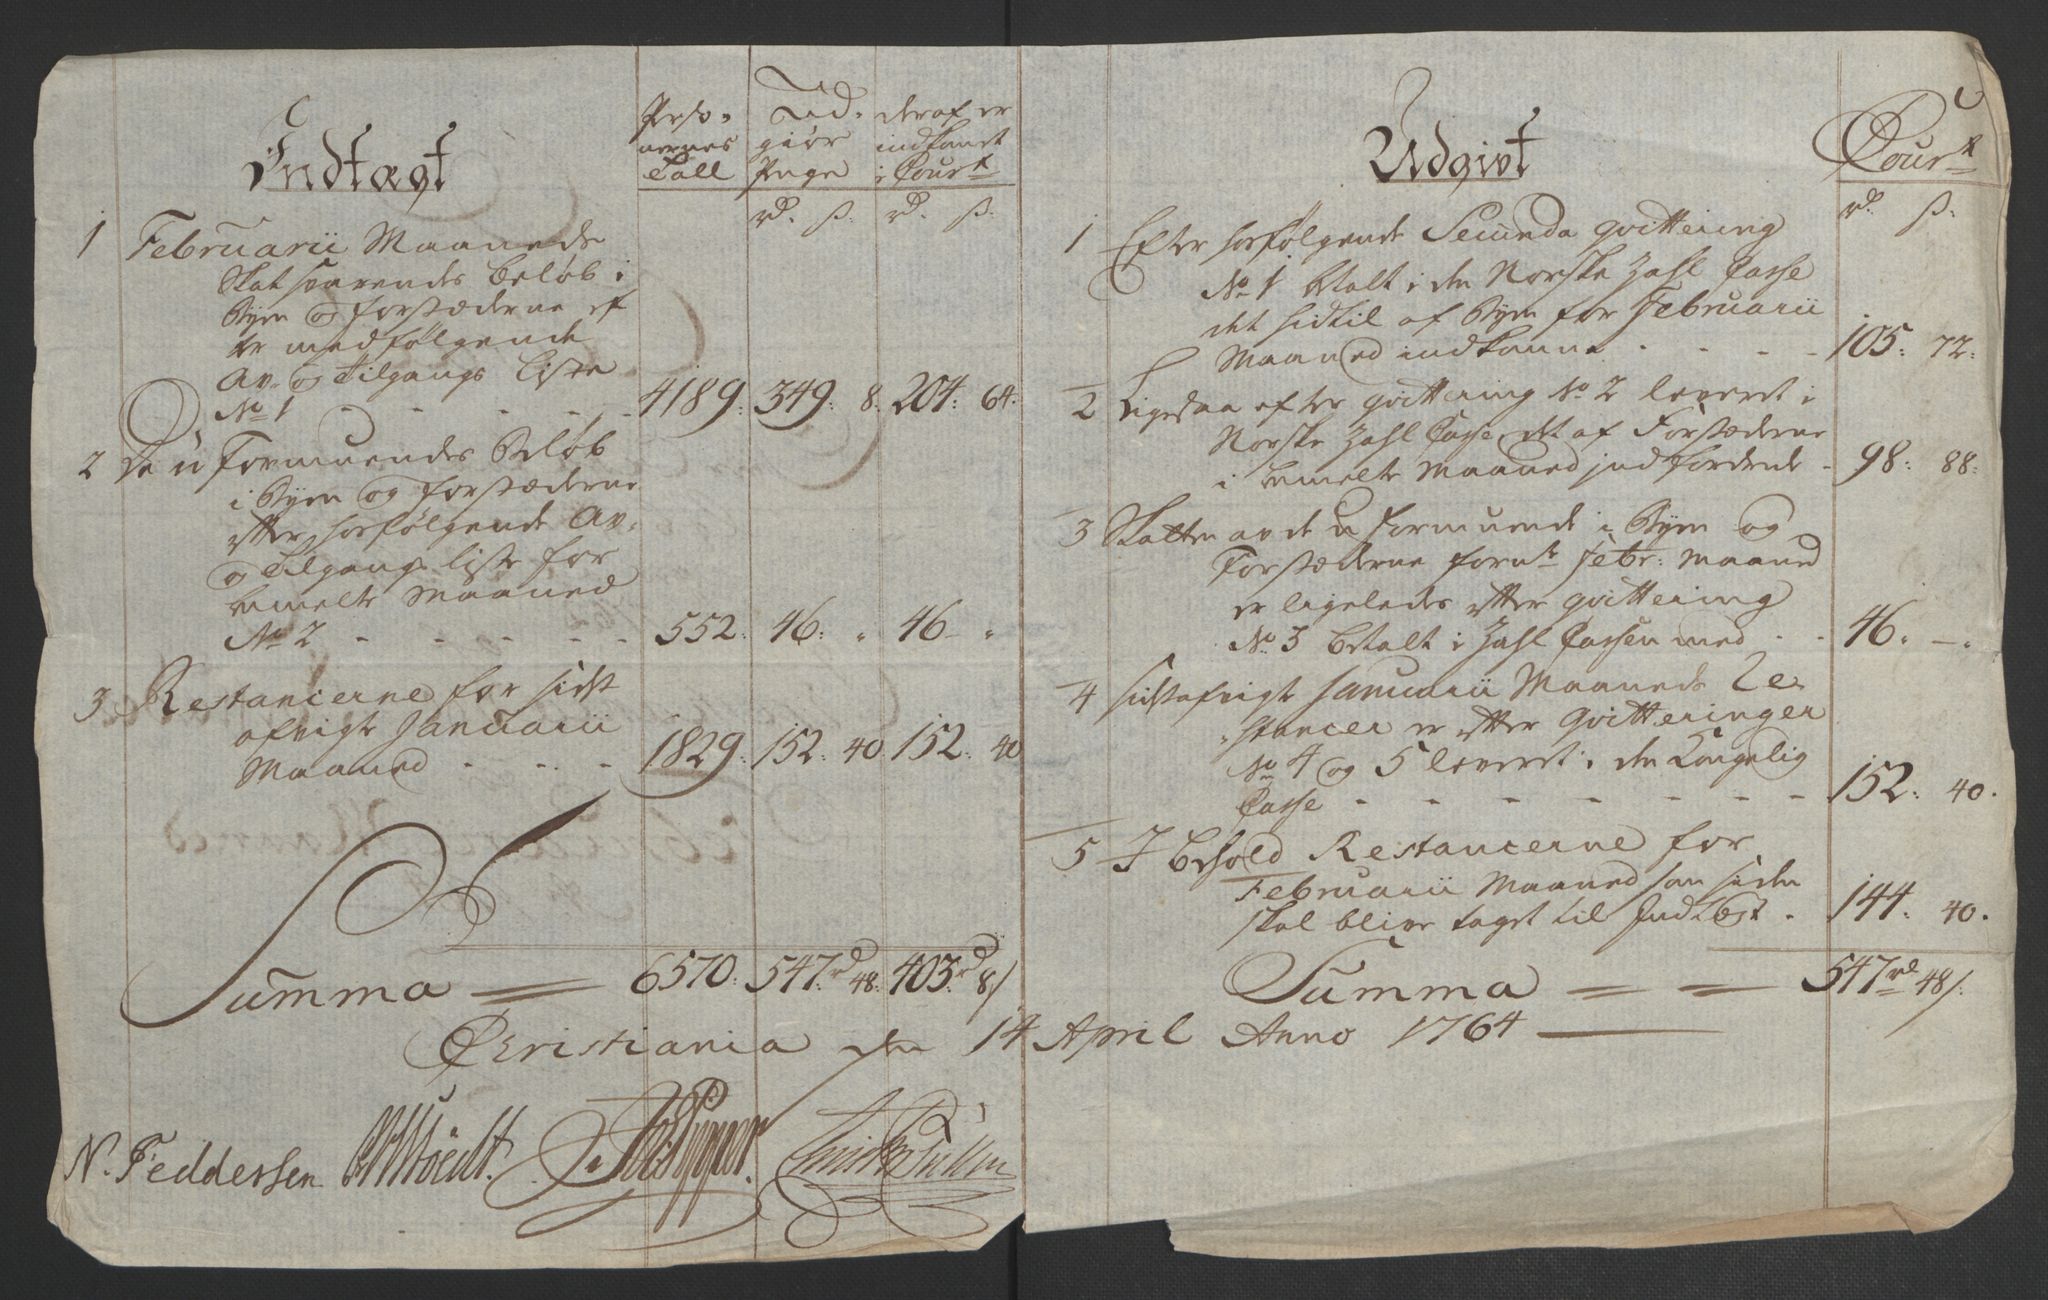 Indtægt
Perso-
nernes
Tall
Ud-
giør
Penge
deraf er
indkomet
i Cour^t
rd. ß. rd. ß.
1 Februarii Maaneds
Skat svarendes beløb i
Byen og Forstæderne ef
ter medfølgende
Av- og Tilgangs Liste
No 1 - - - - - 4189: 349: 8. 204: 64.
2 De uformuendes Beløb
i Byen og Forstæderne
efter hosfølgende Av-
og Tilgangs liste for
bemelte Maaned
No 2 - - - - - 552: 46: " 46 - "
3 Restancerne for sidst
afvigte Januarii
Maaned - - - 1829: 152: 40 152: 40
Summa 6570: 547 rd 48: 403 rd 8 ß
Udgivt
Cour^t
rd. ß.
1 Efter hosfølgende Secunda qvittering
No 1 betalt i den Norske Zahl Casse
det hidtil af Byen for Februarii
Maaned indkomne - - - - 105: 72:
2 Ligesaa efter qvittering No 2 leveret i
Norske Zahl Casse, det af Forstæderne
i bemelte Maaned indfordrede - 98: 88:
3 Skatten av de uformuende i Byen og
Forstæderne forn^te Febr: Maaned
er ligeledes efter qvittering
No 3 betalt i Zahl Cassen med - - 46. - "
4 Sidstafvigte Januarii Maaneds Re-
stancer er efter Qvitteringer
No 4 og 5 leveret i den Kongelig
Casse - - - - - - - 152: 40.
5 I Behold Restancerne for
Februarii Maaned som siden
skal blive taget til Indtægt. 144: 40.
Summa 547 rd 48 ß.
Christiania den 14 April Anno 1764
N. Feddersen